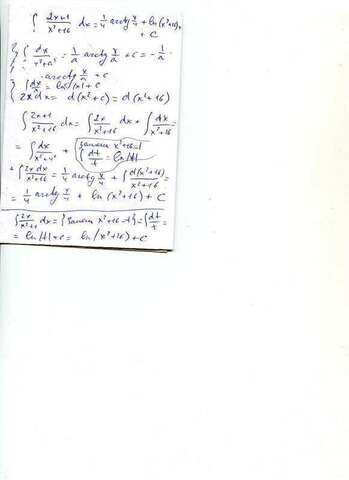 ∫ (2x+1)/(x²+16) dx = 1/4 arctg x/4 + ln(x²+16) +
+ C
{ ∫ dx/(x²+a²) = 1/a arctg x/a + c = - 1/a
arcctg x/a + c
} ∫ dx/x = ln|x| + C
2xdx = d(x²+c) = d(x²+16)
∫ (2x+1)/(x²+16) dx = ∫ 2x/(x²+16) dx + ∫ dx/(x²+16) =
= ∫ dx/(x²+4²) + замен x²+16=t ∫ dt/t = ln|t|
+ ∫ 2xdx/(x²+16) = 1/4 arctg x/4 + ∫ d(x²+16)/(x²+16) =
= 1/4 arctg x/4 + ln(x²+16) + C
dx = { замен x²+16=t } = ∫ dt/t =
= ln|t| + c = ln(x²+16) + C